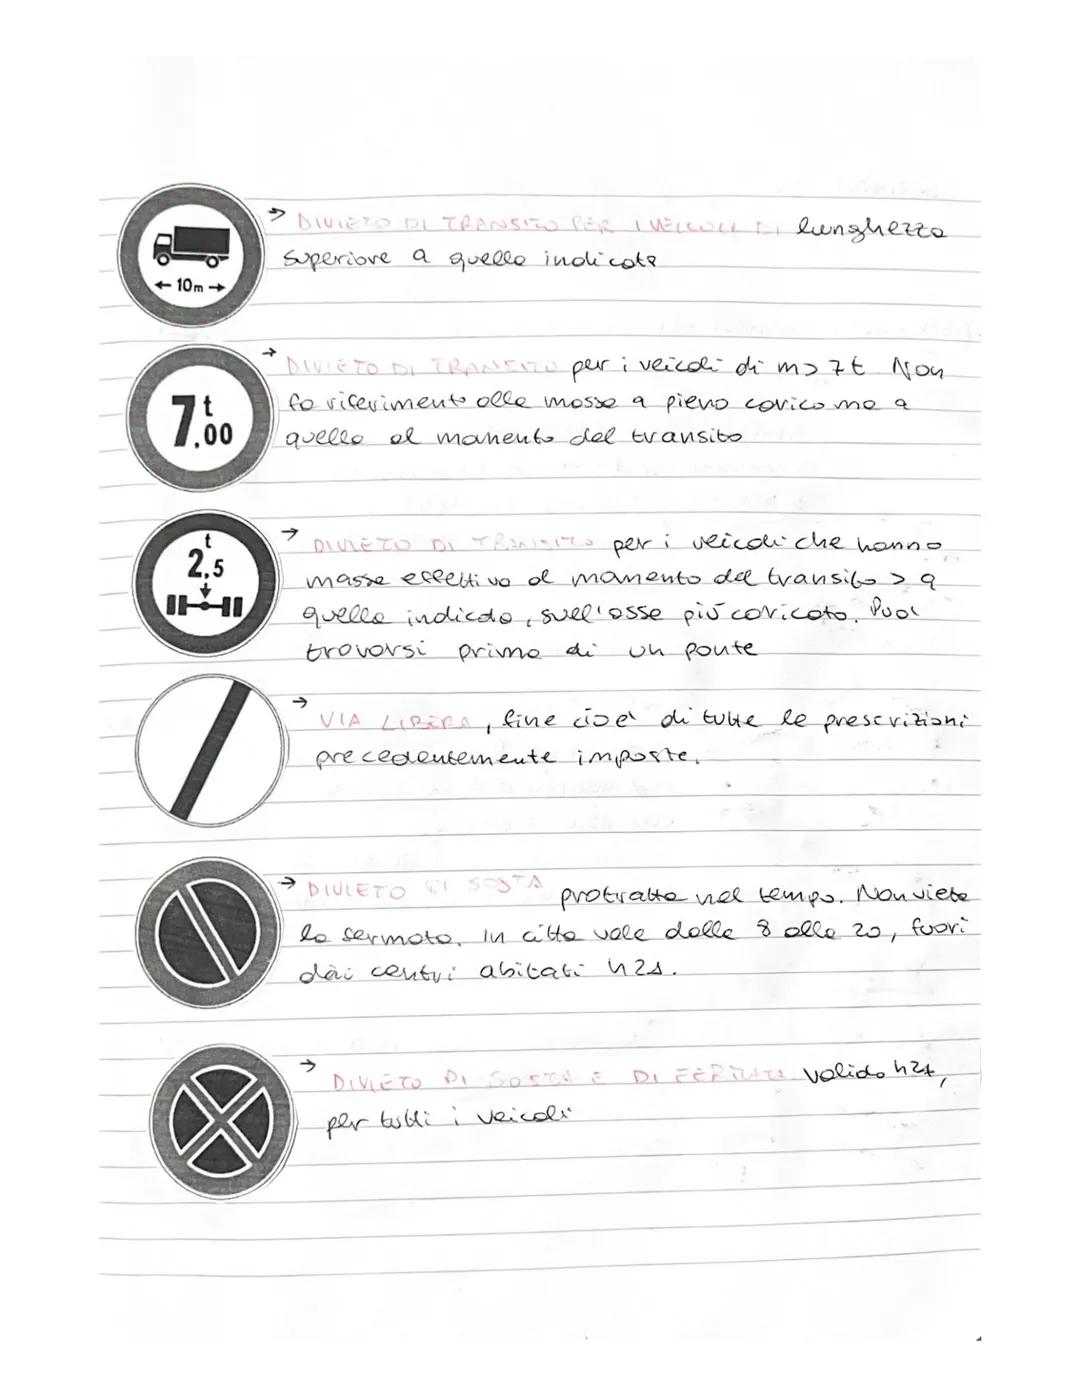 → DIVIETO DI TRANSITO PER I VEICOLI DI lunghezza
superiore a quella indicata
← 10m →
→ DIVIETO DI TRANSITO per i veicoli di m > 7t. Non
fa riferimento alla massa a pieno carico ma a
quella al momento del transito
7,00 t
→ DIVIETO DI TRANSITO per i veicoli che hanno
massa effettiva al momento del transito > a
quella indicata, sull'asse più caricato. Puoi
trovarsi prima di un ponte
t
2,5
→ VIA LIBERA, fine cioè di tutte le prescrizioni
precedentemente imposte.
→ DIVIETO DI SOSTA protratta nel tempo. Non vieta
la fermata. In città vale dalle 8 alle 20, fuori
dai centri abitati h24.
→ DIVIETO DI SOSTA E DI FERMATA valido h24,
per tutti i veicoli